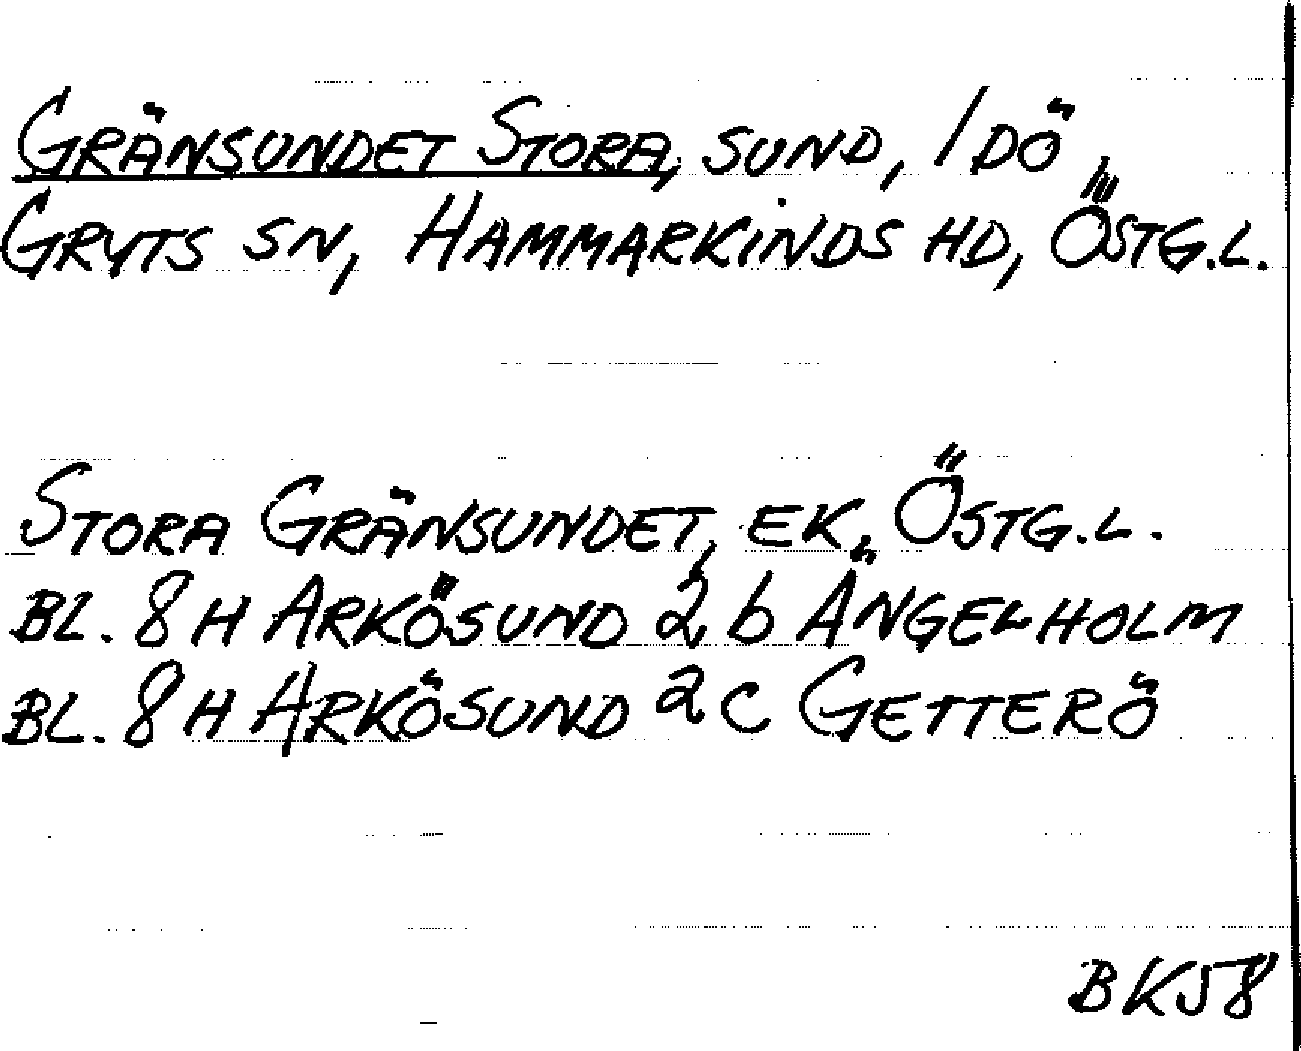 GRÄNSUNDET STORA, SUND, IDÖ,
GRYTS SN, HAMMARKINDS HD, ÖSTG.L.
STORA GRÄNSUNDET, EK, ÖSTG.L.
BL. 8 H ARKÖSUND 2 b ÄNGELHOLM
BL. 8 H ARKÖSUND 2 C GETTERÖ
BK58